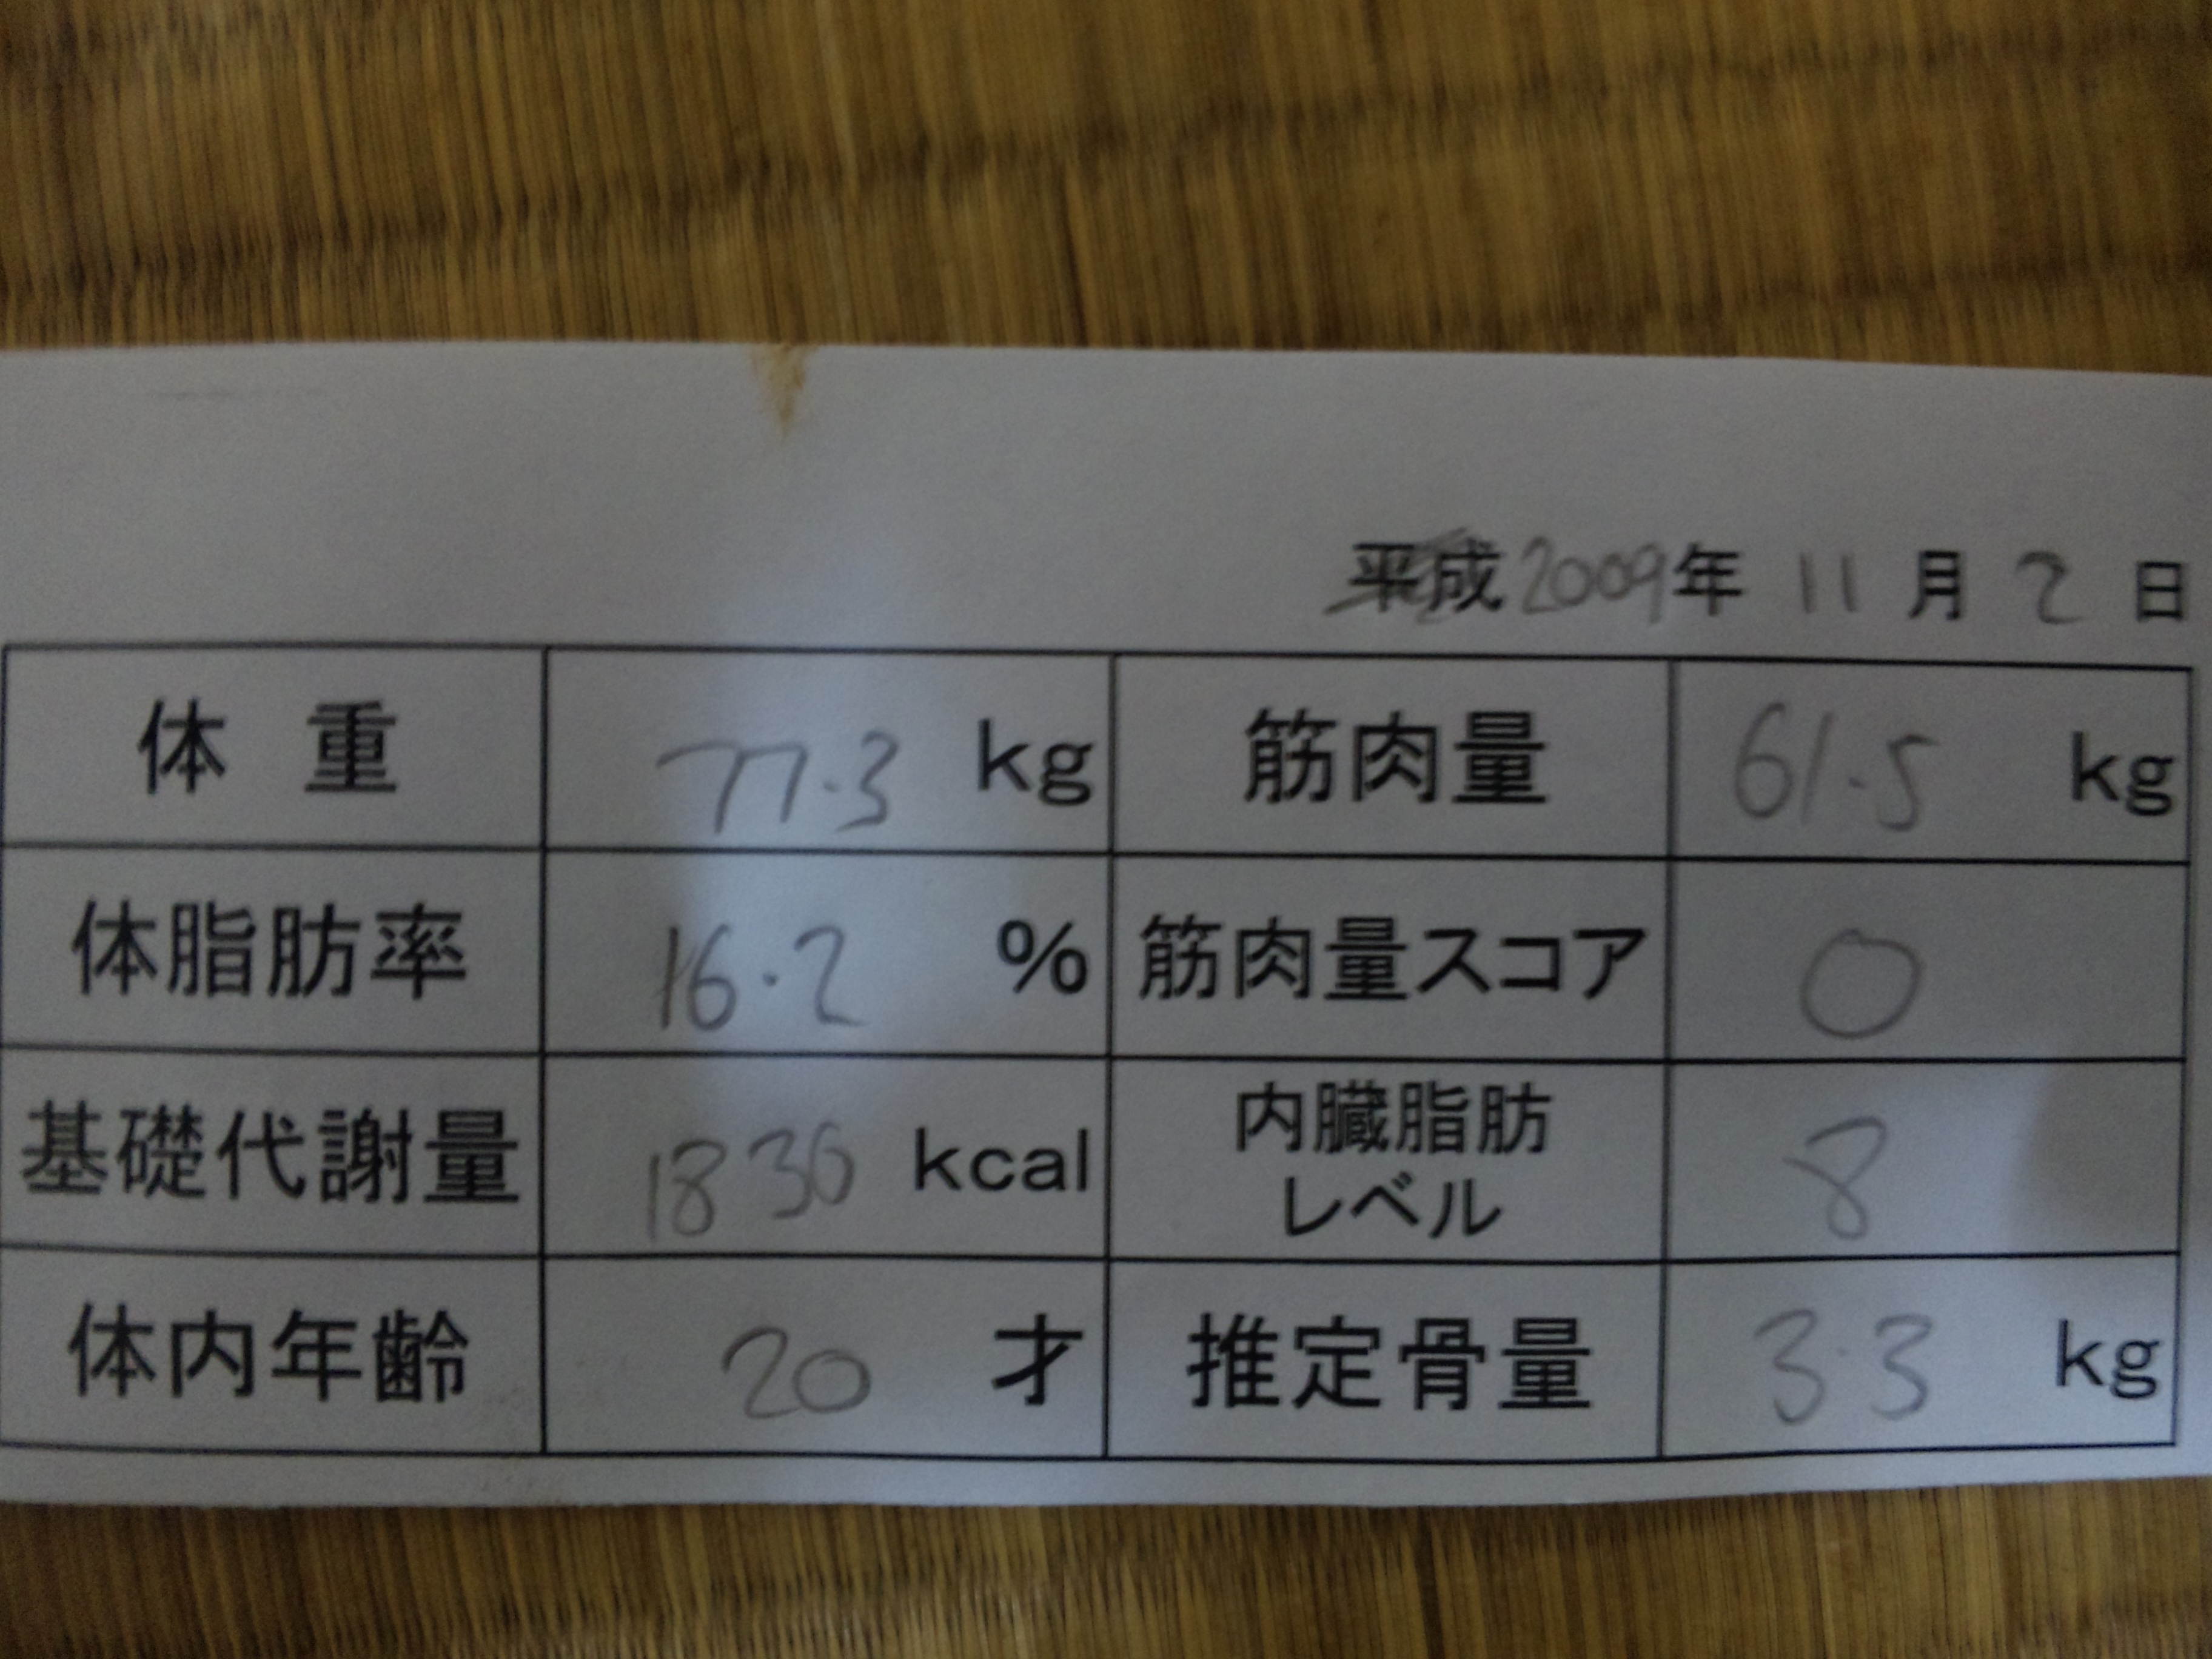 平成2009年 11月 2日
体重 77.3 kg 筋肉量 61.5 kg
体脂肪率 16.2 % 筋肉量スコア 0
基礎代謝量 1836 kcal 内臓脂肪レベル 8
体内年齢 20 才 推定骨量 3.3 kg